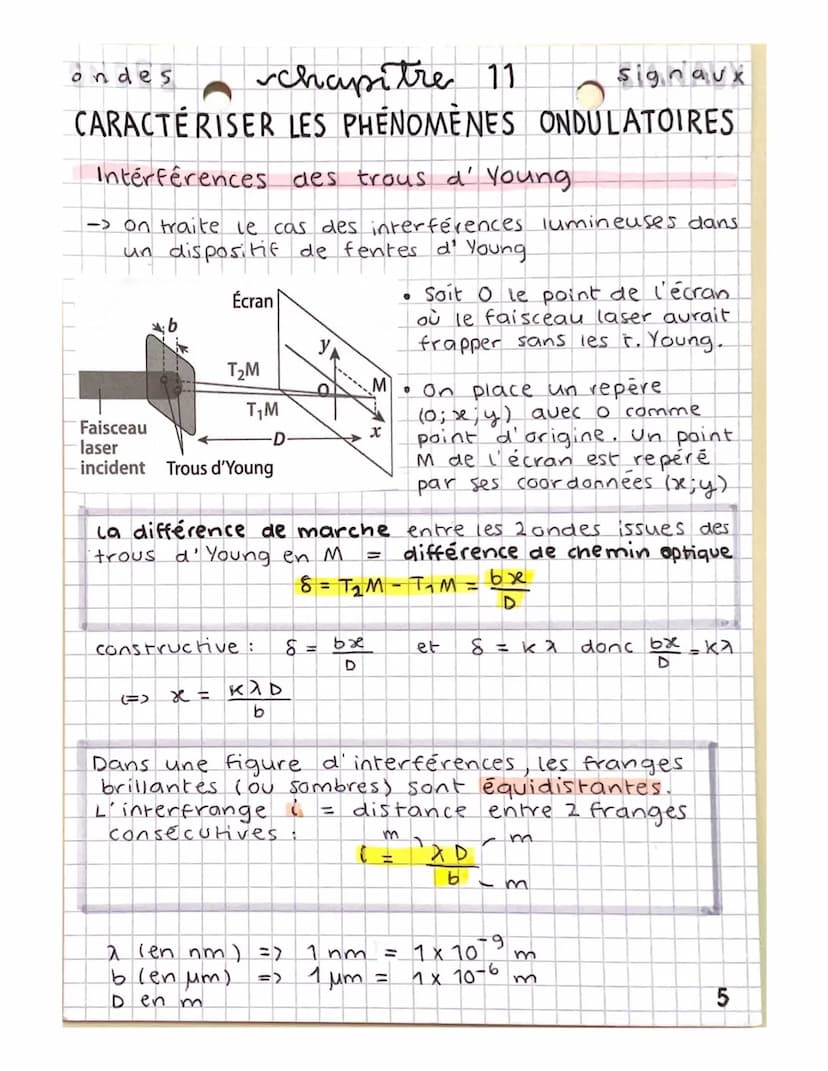 ondes chapitre 11 signaux
CARACTÉRISER LES PHÉNOMÈNES ONDULATOIRES
Intérférences des trous d'Young
-> on traite le cas des interférences lumineuses dans
un dispositif de fentes d'Young
Écran
b
y
T₂M
O
M
T₁M
x
D
Faisceau
laser
incident
Trous d'Young
• Soit O le point de l'écran
où le faisceau laser aurait
frapper sans les t. Young.
• On place un repère
(O;x;y) avec O comme
point d'origine. Un point
M de l'écran est repéré
par ses coordonnées (x;y)
La différence de marche entre les 2 ondes issues des
trous d'Young en M = différence de chemin optique
δ = T₂M - T₁M = bx/D
constructive : δ = bx/D et δ = Kλ donc bx/D = Kλ
(=) x = KλD/b
Dans une figure d'interférences, les franges
brillantes (ou sombres) sont équidistantes.
L'interfrange i = distance entre 2 franges
consécutives :
m m
i = λD/b
m
λ (en nm) => 1 nm = 1 x 10⁻⁹ m
b (en μm) => 1 μm = 1 x 10⁻⁶ m
D en m
5